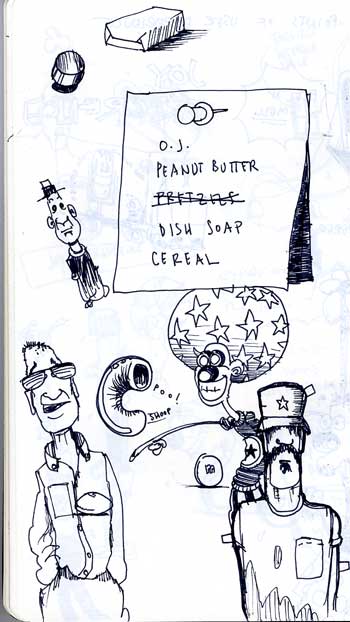 O.J.
PEANUT BUTTER
PRETZELS
DISH SOAP
CEREAL
POO!
SHOOP